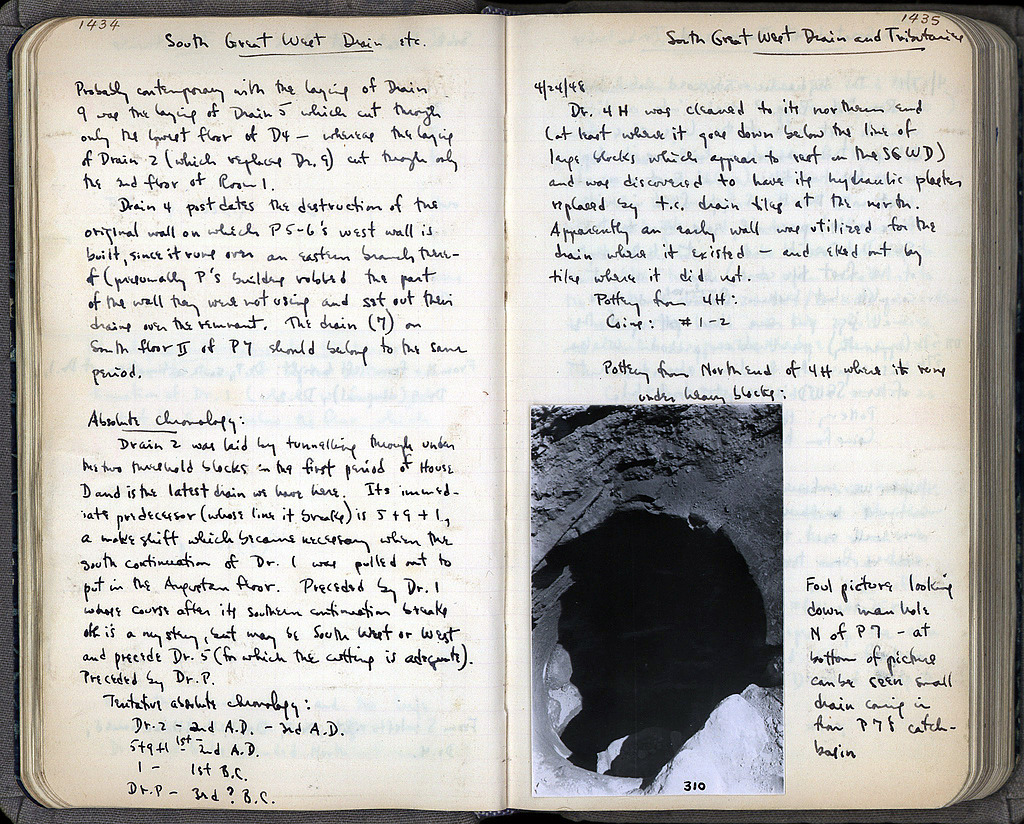 1434
South Great West Drain etc.
Probably contemporary with the laying of Drain
9 was the laying of Drain 5 which cut through
only the lowest floor of D4 – whereas the laying
of Drain 2 (which replaces Dr. 9) cut through only
the 2nd floor of Room 1.
Drain 4 postdates the destruction of the
original wall on which P 5-6's west wall is
built, since it runs over an eastern branch there-
of (presumably P's builders robbed the part
of the wall they were not using and set out their
drains over the remnant. The drain (7) on
South floor II of P7 should belong to the same
period.
Absolute chronology:
Drain 2 was laid by tunnelling through under
the two threshold blocks in the first period of House
D and is the latest drain we have here. Its immed-
iate predecessor (whose line it breaks) is 5+9+1,
a makeshift which became necessary when the
south continuation of Dr. 1 was pulled out to
put in the Augustan floor. Preceded by Dr. 1
whose course after its southern continuation breaks
off is a mystery, but may be South West or West
and precede Dr. 5 (for which the cutting is adequate).
Preceded by Dr. P.
Tentative absolute chronology:
Dr. 2 2nd A.D. – 3rd A.D.
5+9+1 1st – 2nd A.D.
1 – 1st B.C.
Dr. P – 3rd? B.C.
1435
South Great West Drain and Tributaries
4/24/48
Dr. 4H was cleaned to its northern end
(at least where it goes down below the line of
large blocks which appear to rest on the SGWD)
and was discovered to have its hydraulic plaster
replaced by t.c. drain tiles at the north.
Apparently an early wall was utilized for the
drain where it existed – and eked out by
tiles where it did not.
Pottery from 4H:
Coins: #1-2
Pottery from North end of 4H where its runs
under heavy blocks:
310
Foul picture looking
down manhole
N of P7 – at
bottom of picture
can be seen small
drain coming in
from P7's catch-
basin